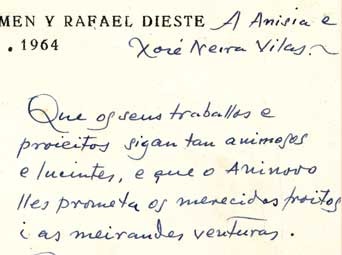 MEN Y RAFAEL DIESTE
. 1964
A Anisia e
Xosé Neira Vilas.~
Que os seus traballos e
proieitos sigan tan animosos
e lucintes, e que o Aninovo
lles prometa os merecidos froitos
i as meirandes venturas.